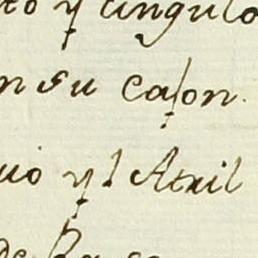 y cingulo
n su cajon.
uio y 1 Atril